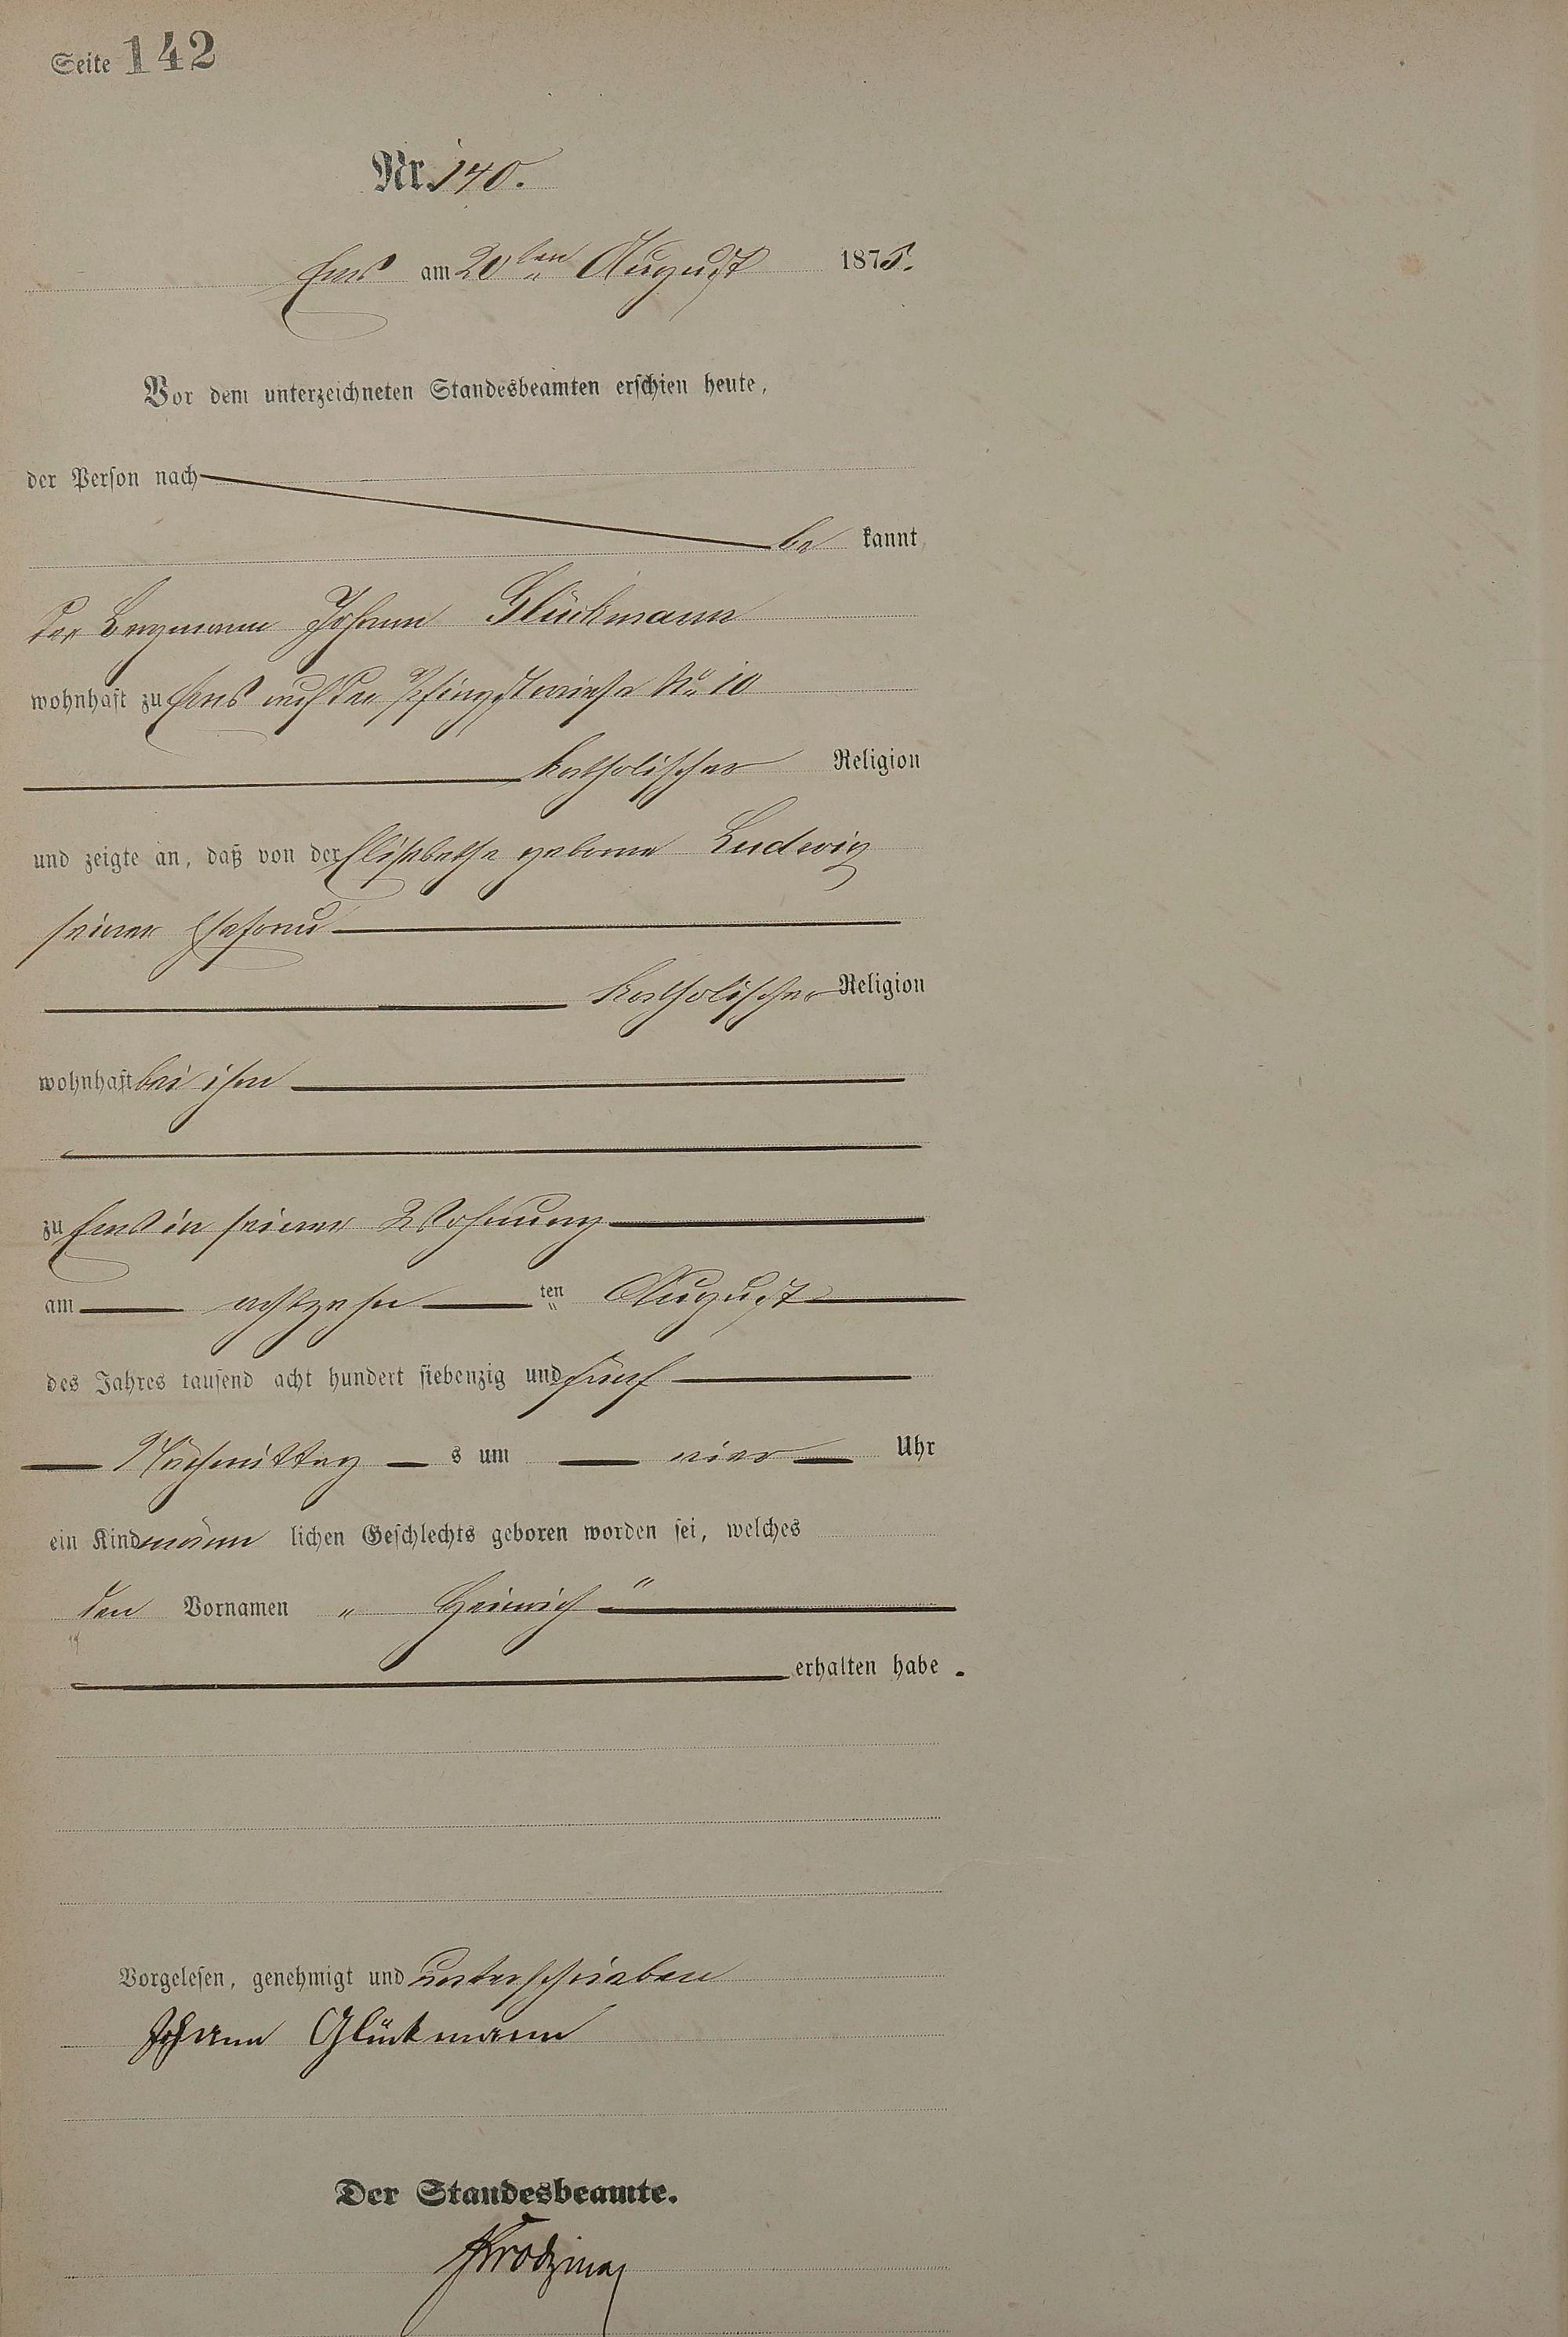 Seite 142
Nr. 140.
Ems am 20ten August 1875.
Vor dem unterzeichneten Standesbeamten erschien heute,
der Person nach
be kannt
der Bergmann Johann Glückmann
wohnhaft zu Ems auf der Pfingstwiese No 10
katholischer Religion
und zeigte an, daß von der Elisabetha geborne Ludwig
seiner Ehefrau
katholischer Religion
wohnhaft bei ihm
zu Ems in seiner Wohnung
am achtzehn ten August
des Jahres tausend acht hundert siebenzig und fünf
Nachmittag s um vier Uhr
ein Kind männ lichen Geschlechts geboren worden sei, welches
den Vornamen „ Heinrich “
erhalten habe .
Vorgelesen, genehmigt und unterschrieben
Johann Glückmann
Der Standesbeamte.